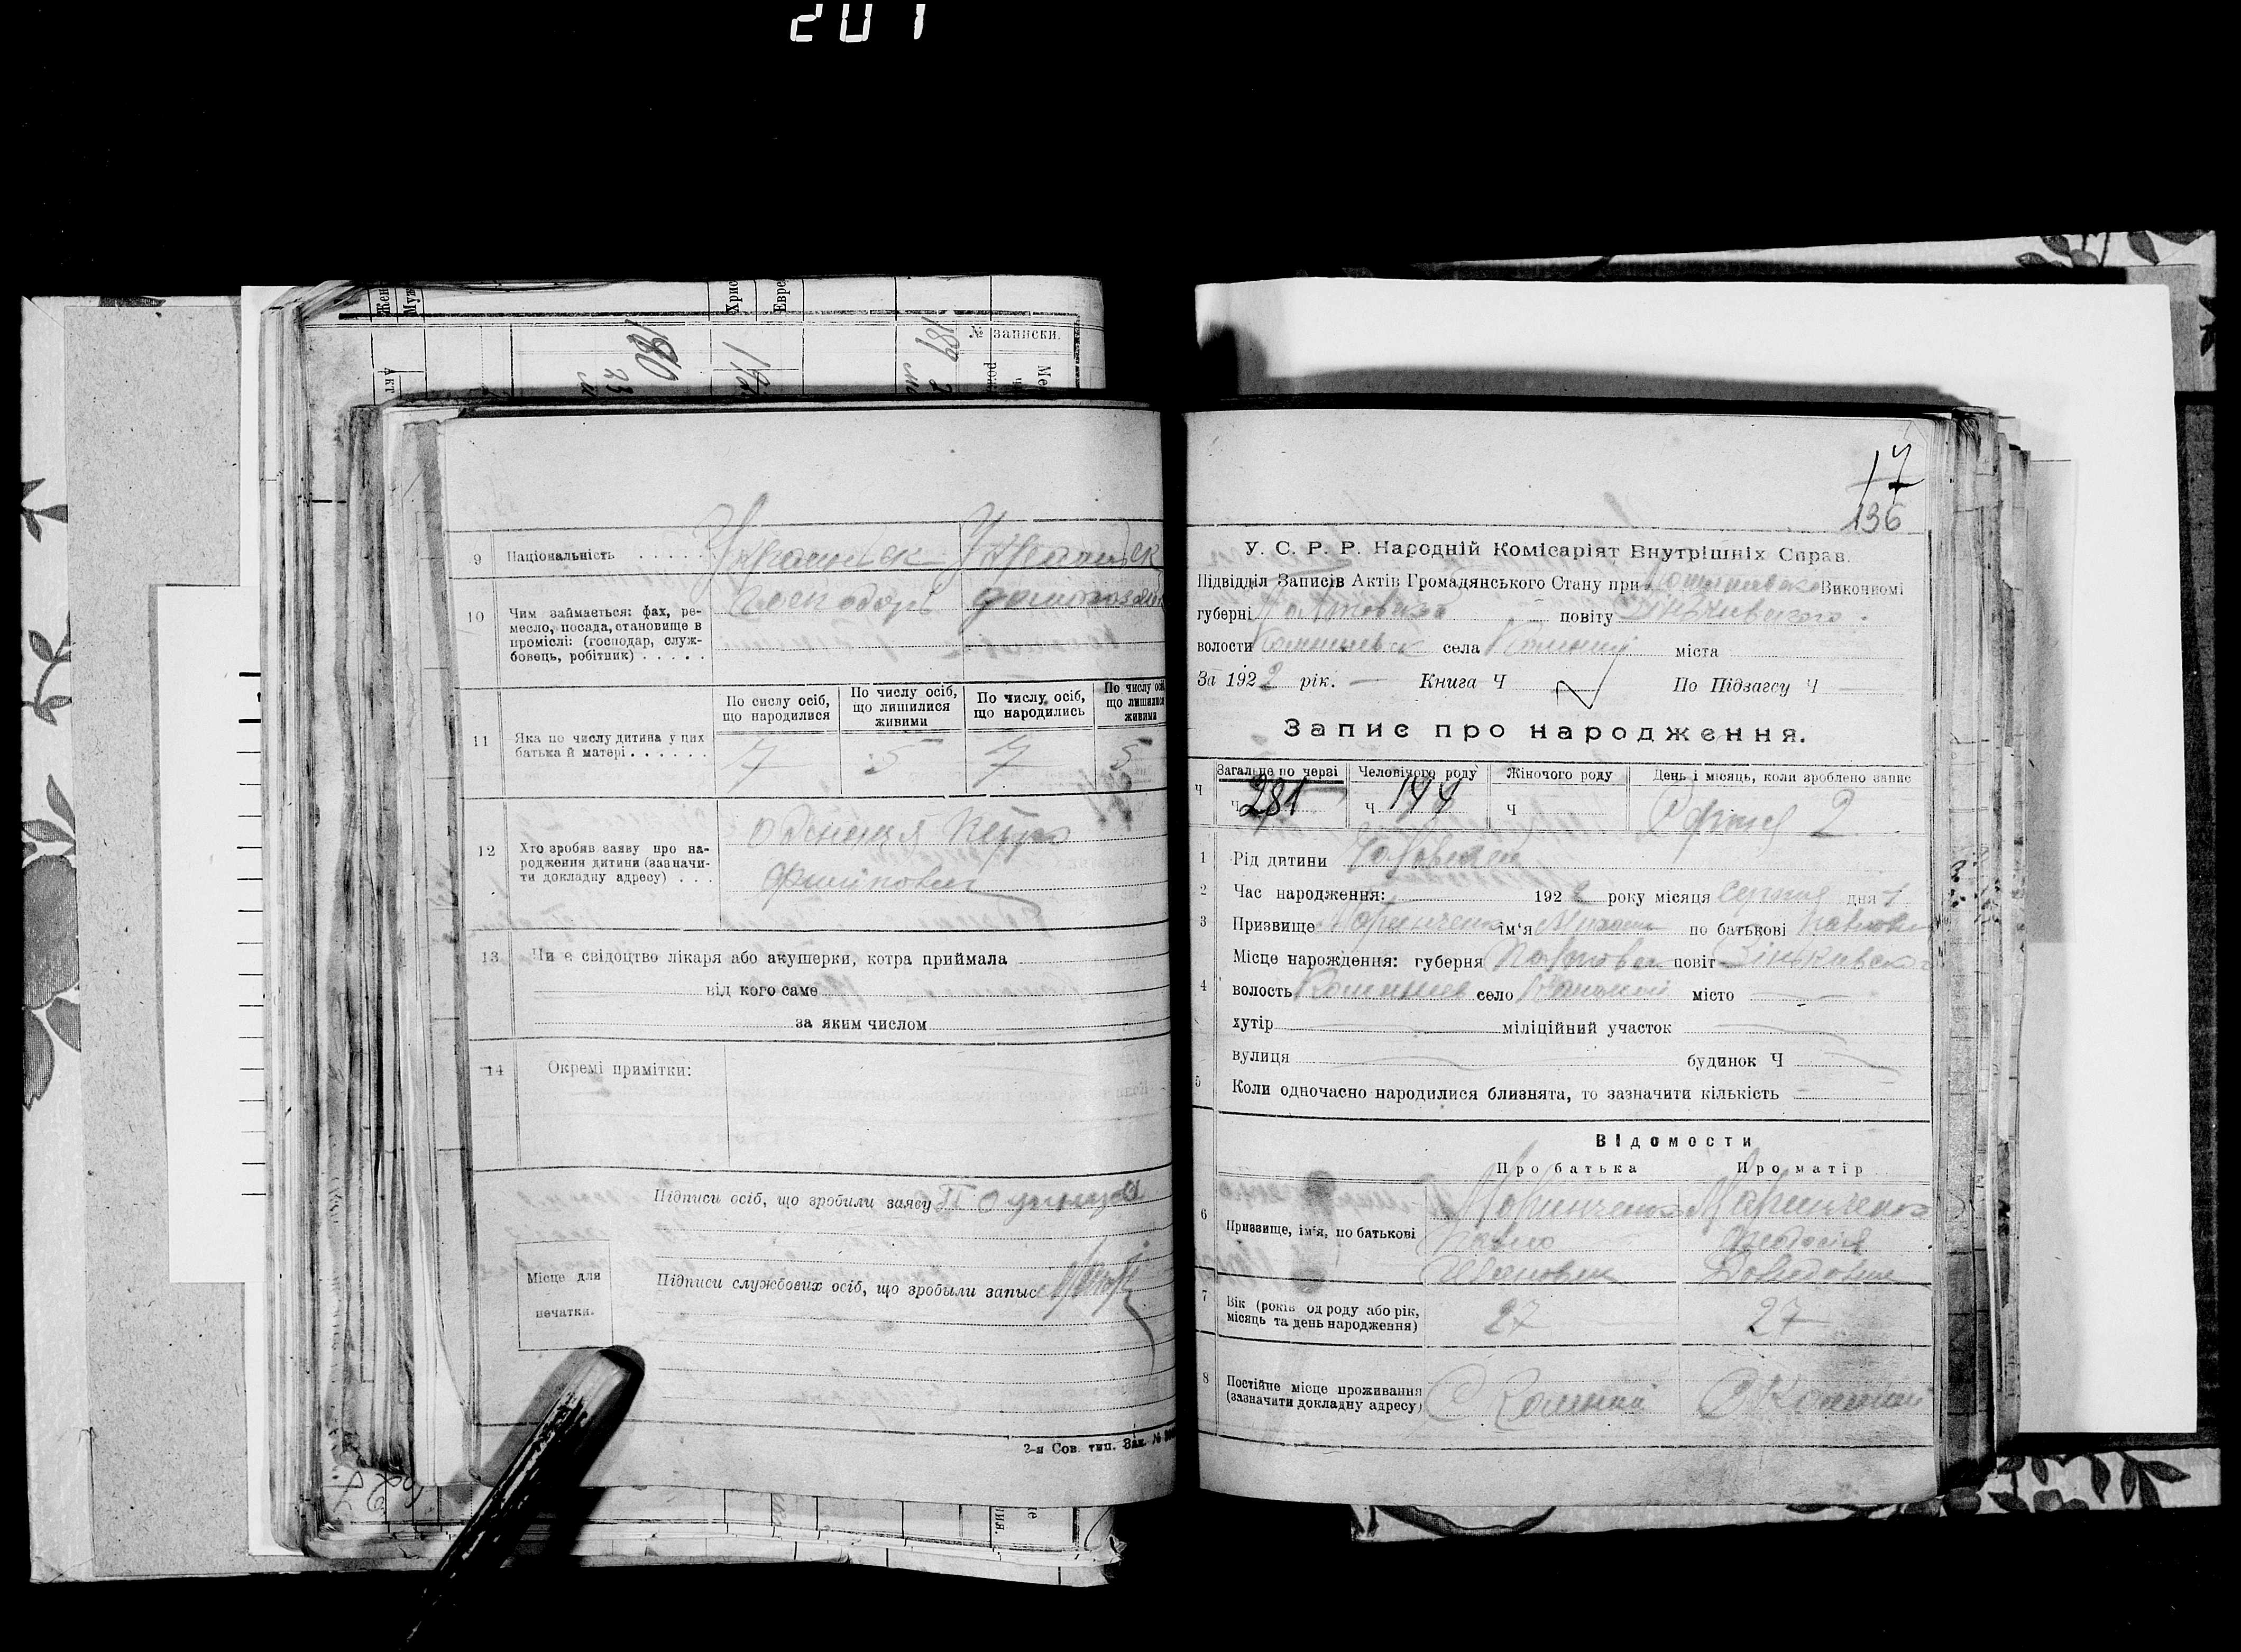 201
Жен
Муж
Хрис
Евре
Акт
190
23
189
№ записки.
9 Національність . . . . . Украинск Украинск
10 Чим займається: фах, ре-
месло, посада, становище в
проміслі: (господар, служ-
бовець, робітник) . . . . .
Господарь
По сислу осіб,
що народилися
По числу осіб,
що лишилися
живими
По числу осіб,
що народились
По числу осіб
що лишилися
живими
11 Яка по числу дитина у цих
батька й матері . . . . . .
7 5 7 5
12 Хто зробив заяву про на-
родження дитини (зазначи-
ти докладну адресу) . . .
Одениця Петро
Филипович
13 Чи є свідоцтво лікаря або акушерки, котра приймала
від кого саме
за яким числом
14 Окремі примітки:
Підписи осіб, що зробили заяву П Одениця
Місце для
печатки.
Підписи службових осіб, що зробыли запыс
2-я Сов. тип. Зак. №
17
136
У. С. Р. Р. Народній Комісаріят Внутрішніх Справ.
Підвідділ Записів Актів Громадянського Стану при Комишевском Виконкомі
губерні Полтавская повіту Зіньківского
волости Комишевск села Комиши міста
За 1922 рік. — Книга Ч По Підзагсу Ч
Запис про народження.
Загальне по черзі Человічого роду Жіночого роду День і місяць, коли зроблено запис
Ч Ч 281 Ч 144 Ч Серпня 2
1 Рід дитини Чоловичеи
2 Час народження: 1922 року місяця серпня дня 1
3 Призвище Маринченко ім'я Михаил по батькові Павлович
Місце нарождення: губерня Полтовск повіт Зіньківско
4 волость Комишев село Комиши місто —
хутір — міліційний участок —
вулиця — будинок Ч —
5 Коли одночасно народилися близнята, то зазначити кількість —
Відомости
Про батька Про матір
6 Призвище, ім'я, по батькові
Маринченко Маринченко
Павло Феодосія
Иванович Давидовна
7 Вік (років од роду або рік,
місяць та день народження)
27 27
8 Постійне місце проживання
(зазначити докладну адресу)
С Комиши С Комиши